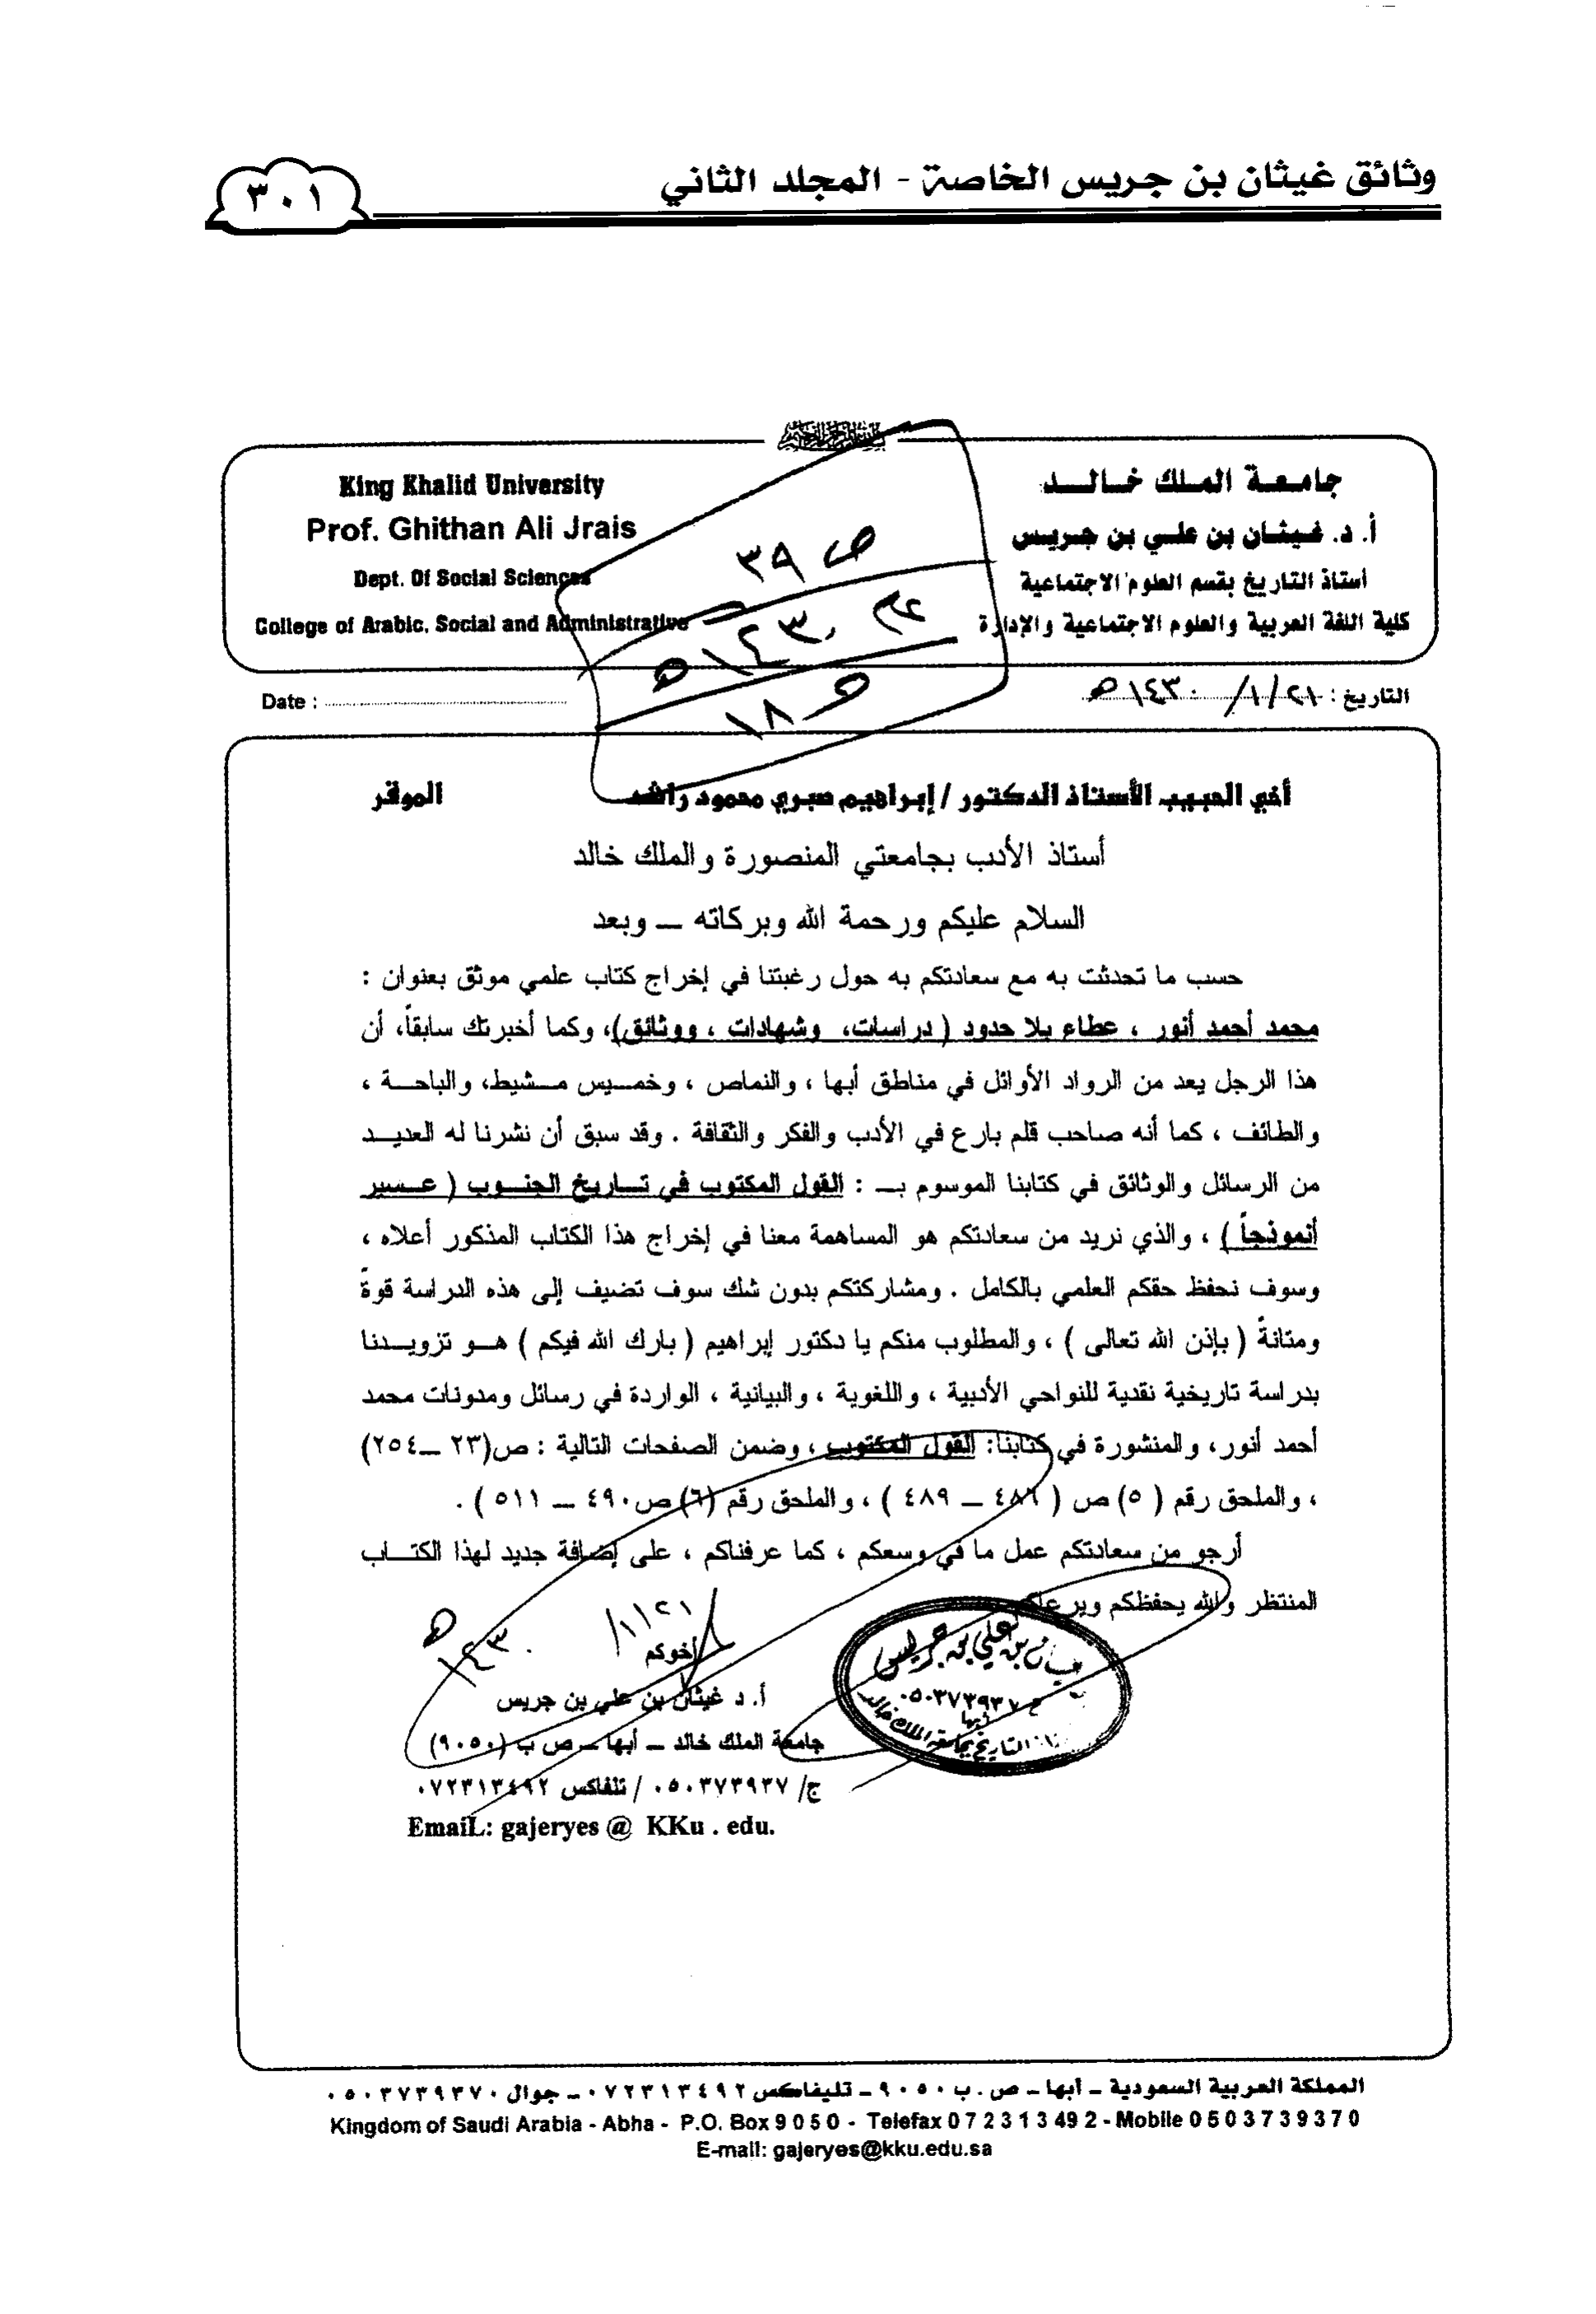 وثائق غيثان بن جريس الخاصة - المجلد الثاني
٣٠١
جامعة الملك خالد
أ. د. غيثان بن علي بن جريس
أستاذ التاريخ بقسم العلوم الاجتماعية
كلية اللغة العربية والعلوم الاجتماعية والإدارة
King Khalid University
Prof. Ghithan Ali Jrais
Dept. Of Social Sciences
College of Arabic, Social and Administrative
ص ٣٩
عام ١٤٣٠هـ
و ١٨
التاريخ : ٢١/ ١/ ١٤٣٠هـ
Date :
أخي الحبيب الأستاذ الدكتور / إبراهيم صبري محمود راشد الموقر
أستاذ الأدب بجامعتي المنصورة والملك خالد
السلام عليكم ورحمة الله وبركاته – وبعد
حسب ما تحدثت به مع سعادتكم به حول رغبتنا في إخراج كتاب علمي موثق بعنوان :
محمد أحمد أنور ، عطاء بلا حدود ( دراسات، وشهادات ، ووثائق)، وكما أخبرتك سابقاً، أن
هذا الرجل يعد من الرواد الأوائل في مناطق أبها ، والنماص ، وخميس مشيط، والباحة ،
والطائف ، كما أنه صاحب قلم بارع في الأدب والفكر والثقافة . وقد سبق أن نشرنا له العديد
من الرسائل والوثائق في كتابنا الموسوم بـ : القول المكتوب في تاريخ الجنوب ( عسير
أنموذجاً ) ، والذي نريد من سعادتكم هو المساهمة معنا في إخراج هذا الكتاب المذكور أعلاه ،
وسوف نحفظ حقكم العلمي بالكامل . ومشاركتكم بدون شك سوف تضيف إلى هذه الدراسة قوةً
ومتانةً ( بإذن الله تعالى ) ، والمطلوب منكم يا دكتور إبراهيم ( بارك الله فيكم ) هو تزويدنا
بدراسة تاريخية نقدية للنواحي الأدبية ، واللغوية ، والبيانية ، الواردة في رسائل ومدونات محمد
أحمد أنور، والمنشورة في كتابنا: القول المكتوب ، وضمن الصفحات التالية : ص(٢٣ –٢٥٤)
، والملحق رقم ( ٥) ص ( ٤٨٦ – ٤٨٩ ) ، والملحق رقم (٦) ص٤٩٠ – ٥١١ ) .
أرجو من سعادتكم عمل ما في وسعكم ، كما عرفناكم ، على إضافة جديد لهذا الكتاب
المنتظر والله يحفظكم ويرعاكم
٢١/ ١/ ١٤٣٠هـ
أخوكم
أ. د غيثان بن علي بن جريس
جامعة الملك خالد – أبها – ص ب (٩٠٥٠)
ج/ ٠٥٠٣٧٣٩٣٧ / تلفاكس ٠٧٢٣١٣٤٩٢
EmaiL: gajeryes @ KKu . edu.
بن علي بن جريس
٠٥٠٣٧٣٩٣٧
أبها
التاريخ بجامعة الملك خالد
المملكة العربية السعودية – أبها – ص . ب ٩٠٥٠ – تليفاكس ٠٧٢٣١٣٤٩٢ – جوال ٠٥٠٣٧٣٩٣٧٠
Kingdom of Saudi Arabia - Abha - P.O. Box 9 0 5 0 - Telefax 0 7 2 3 1 3 49 2 - Mobile 0 5 0 3 7 3 9 3 7 0
E-mail: gajeryes@kku.edu.sa